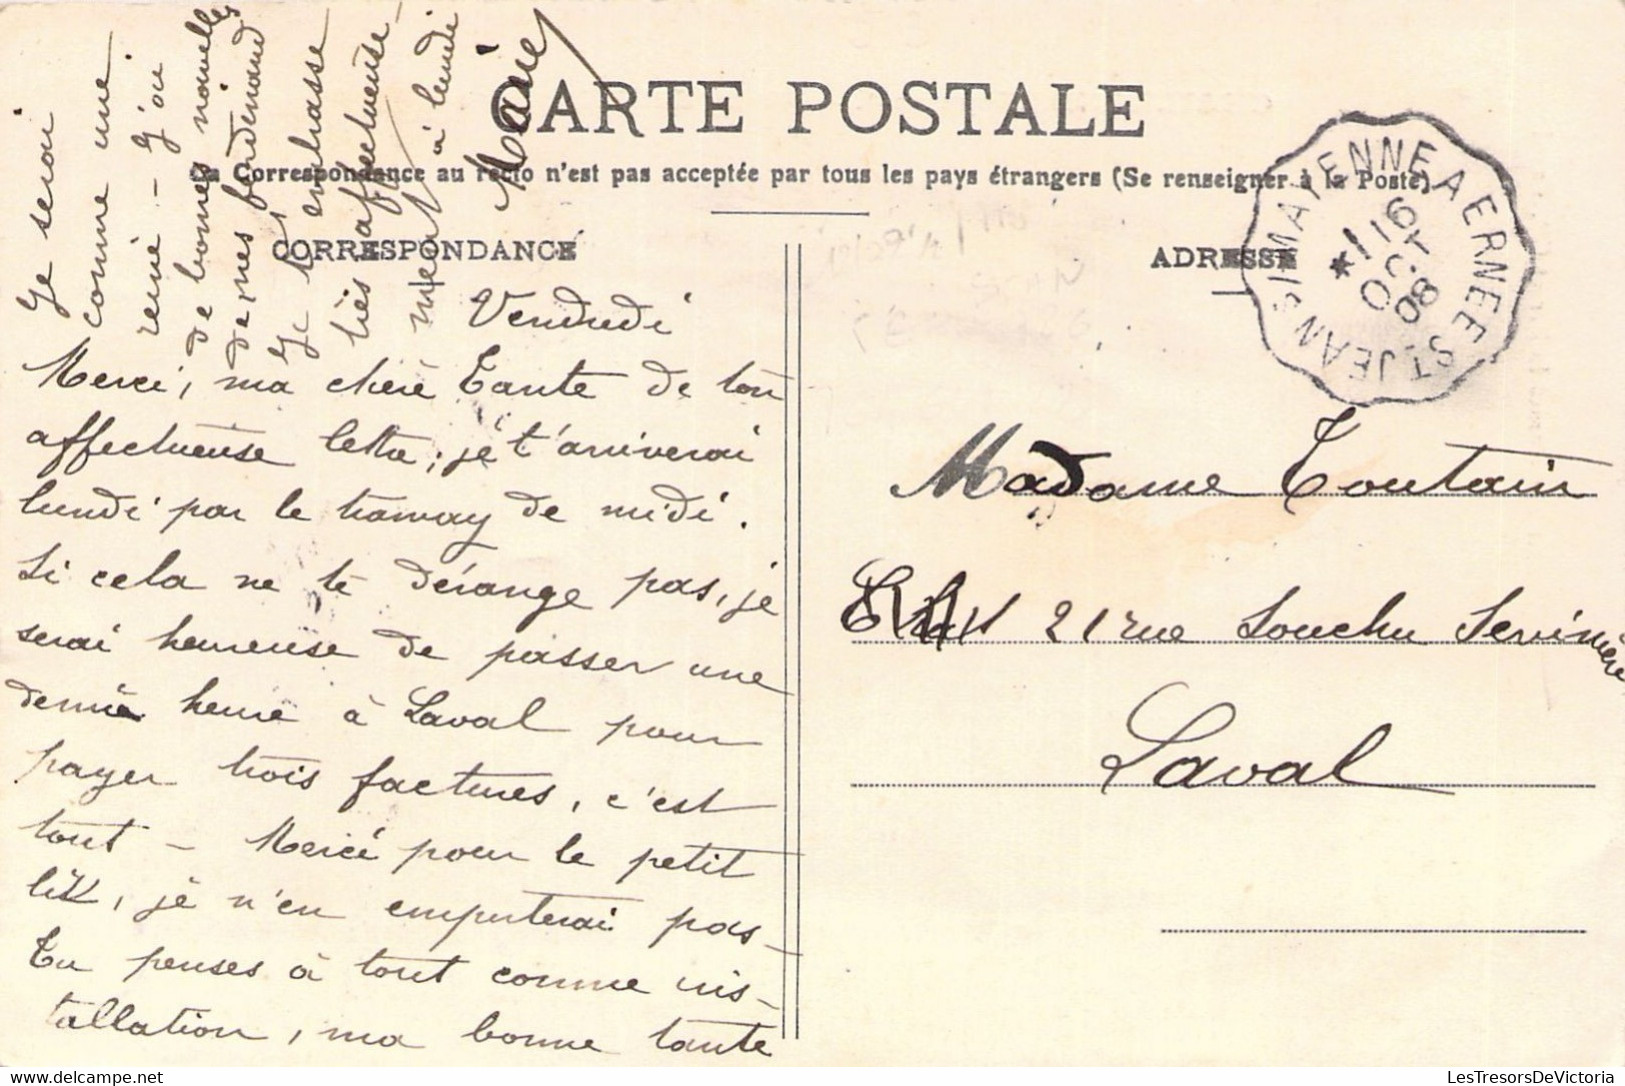 CARTE POSTALE
La Correspondance au recto n'est pas acceptée par tous les pays étrangers (Se renseigner à la Poste)
CORRESPONDANCE
Vendredi
Merci, ma chère Tante de ton
affectueuse lettre, je t'arriverai
lundi par le tramway de midi.
Si cela ne te dérange pas, je
serai heureuse de passer une
demie heure à Laval pour
payer trois factures, c'est
tout - Merci pour le petit
lit, je n'en emporterai pas -
Tu penses à tout comme ins-
tallation, ma bonne tante
Je serai
comme une
reine - J'ai
de bonnes nouvelles
de mes Ferdinand
Je t'embrasse
très affectueuse-
ment à lundi
Marie
ADRESSE
MAYENNE A ERNEE ST. JEAN S/
16
OCT
08
Madame Toutain
21 rue Souchu Servinière
Laval
LesTresorsDeVictoria